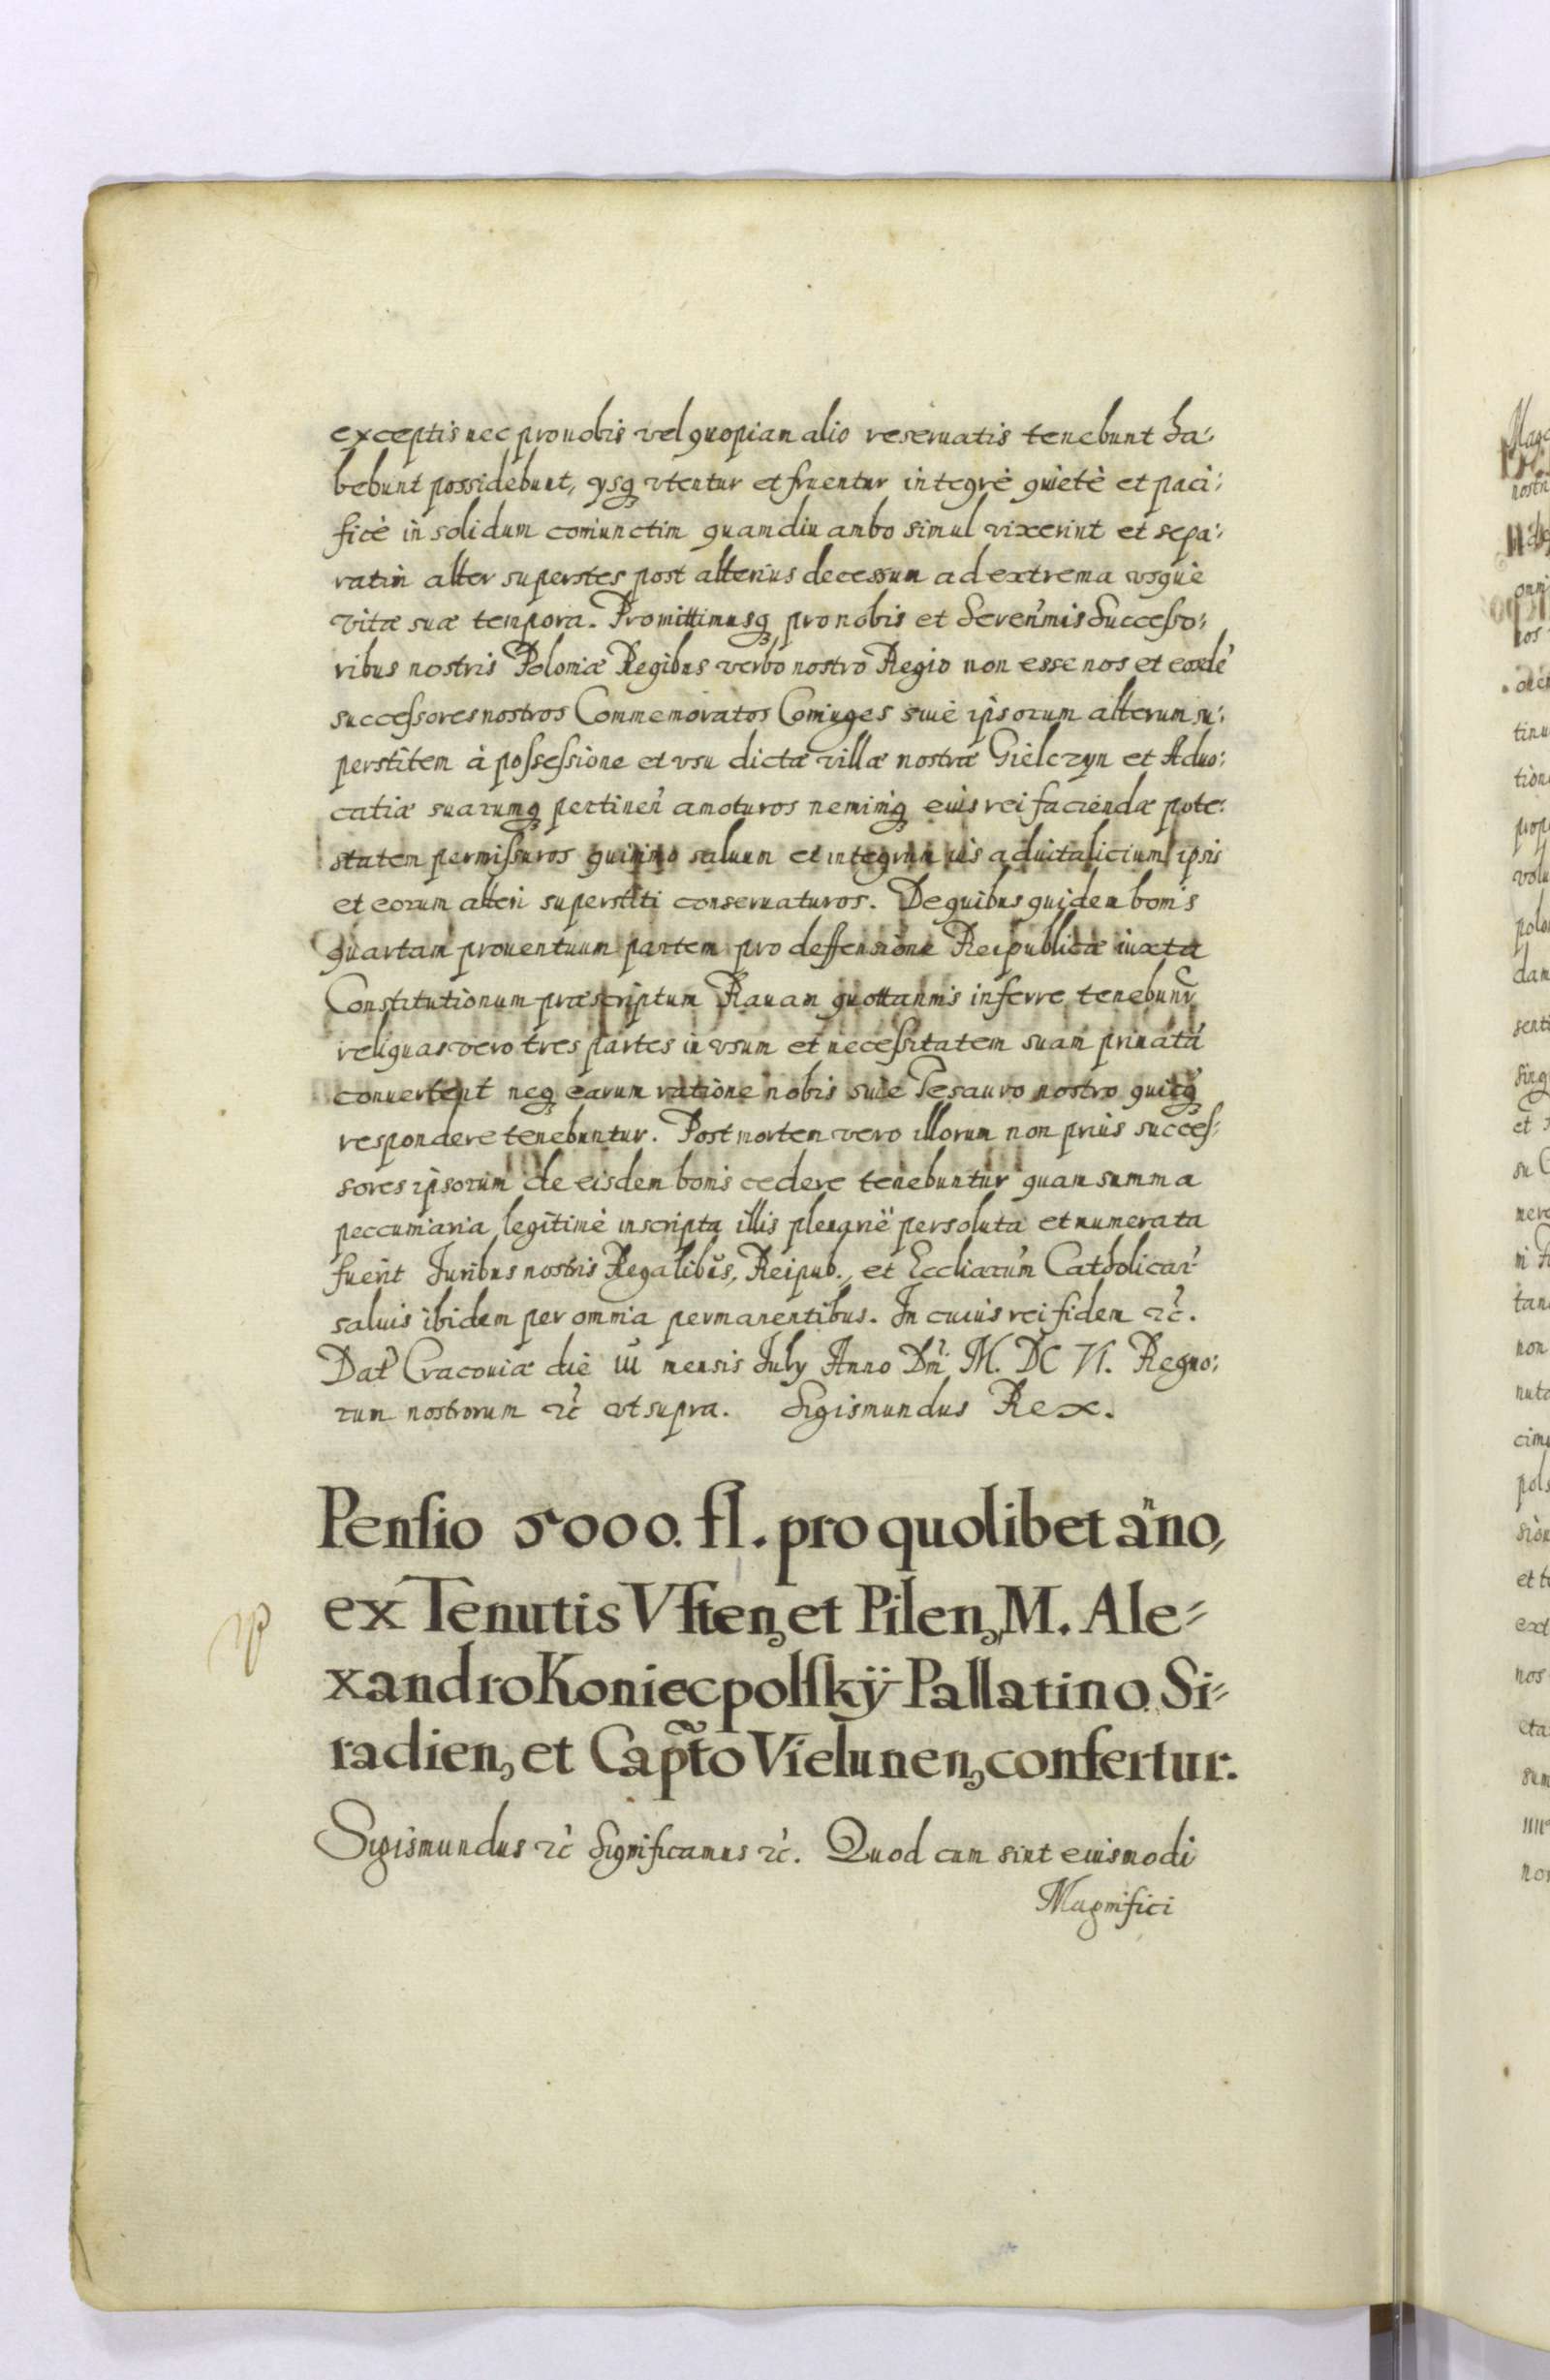 exceptis nec pro nobis vel quopiam alio reseruatis tenebunt ha:
bebunt possidebunt, ysq vtentur et fruentur integrè quietè et paci:
ficè in solidum coniunctim quamdiu ambo simul vixerint et sepa:
ratim alter superstes post alterius decessum ad extrema vsque
vitæ suæ tempora. Promittimusq pro nobis et Serenmis Successo:
ribus nostris Poloniæ Regibus verbo nostro Regio non esse nos et eosdē
successores nostros Commemoratos Coniuges siue ipsorum alterum su:
perstitem à possessione et vsu dictæ villæ nostræ Gielczyn et Aduo:
catiæ suarumq pertinen amoturos neminiq eius rei faciendæ pote:
statem permissuros quinimo saluum et integrum ius aduitalicium ipsis
et eorum alteri superstiti conseruaturos. De quibus quidem bonis
quartam prouentuum partem pro deffensione Reipublicæ iuxta
Constitutionum præscriptum Rauam quottannis inferre tenebunr
reliquas vero tres partes in vsum et necessitatem suam priuatā
conuertent neq earum ratione nobis siue Tesauro nostro quicq
respondere tenebuntur. Post mortem vero illorum non prius succes:
sores ipsorum de eisdem bonis cedere tenebuntur quam summa
peccuniaria legitimè inscripta illis plenariè persoluta et numerata
fuerit Iuribus nostris Regalibus, Reipub., et Eccliarum Catholicar
saluis ibidem per omnia permanentibus. In cuius rei fidem ꝛc.
Dat Cracouiæ die iii mensis July Anno Dni M. DC VI. Regno:
rum nostrorum ꝛc vt supra. Sigismundus Rex.
Pensio 5000. fl. pro quolibet āno,
ex Tenutis Vsten, et Pilen, M. Ale=
xandro Koniecpolskÿ Pallatino Si=
radien, et Capto Vielunen, confertur.
Sigismundus ꝛc Significamus ꝛc. Quod cum sint eiusmodi
Magnifici